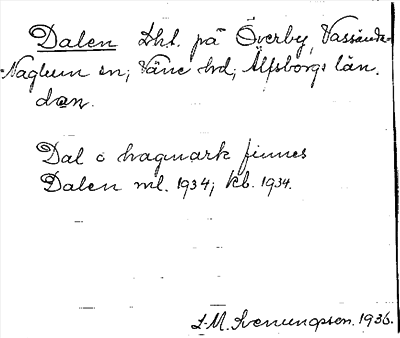 Dalen Lht. på Överby, Vassända-
Naglum sn; Väne hd; Älfsborgs län.
dạn.
Dal o hagmark finnes
Dalen ml. 1934; kb. 1934.
L-M. Svenungson. 1936.